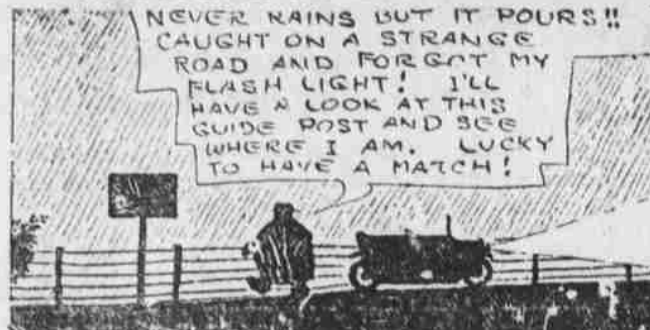 NEVER RAINS BUT IT POURS!!
CAUGHT ON A STRANGE
ROAD AND FORGOT MY
FLASH LIGHT! I'LL
HAVE A LOOK AT THIS
GUIDE POST AND SEE
WHERE I AM. LUCKY
TO HAVE A MATCH!